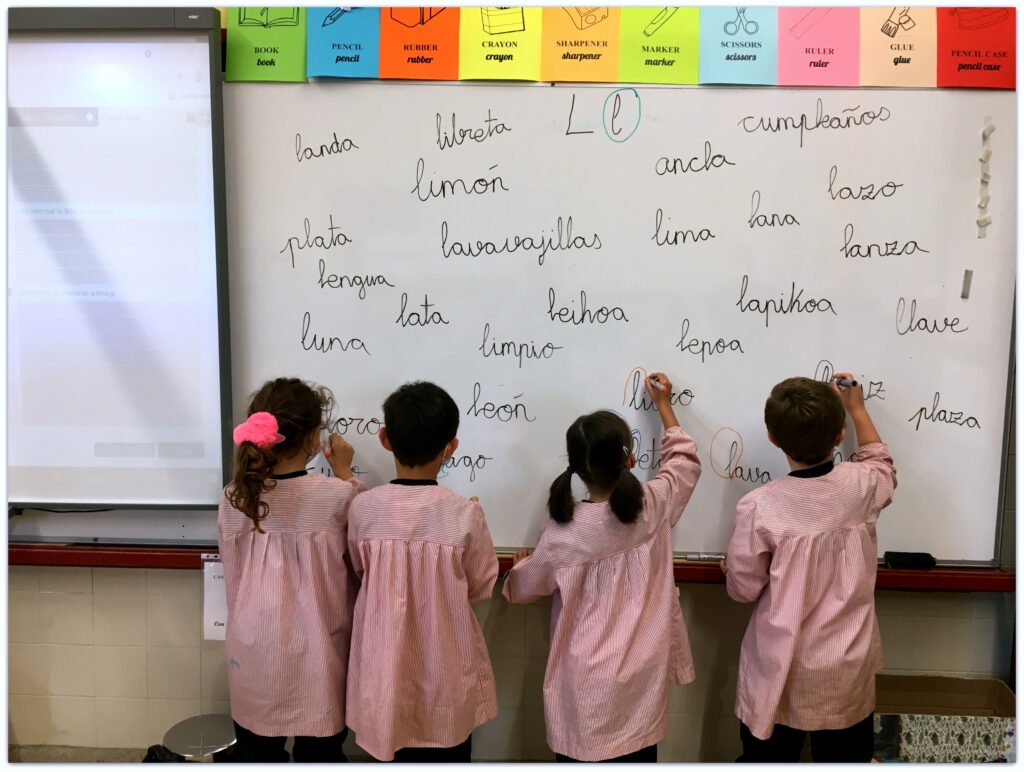 BOOK
book
PENCIL
pencil
RUBBER
rubber
CRAYON
crayon
SHARPENER
sharpener
MARKER
marker
SCISSORS
scissors
RULER
ruler
GLUE
glue
PENCIL CASE
pencil case
L l
landa libreta cumpleaños
limón ancla lazo
plata lavavajillas lima lana lanza
lengua
lata leihoa lapikoa llave
luna limpio lepoa
león libro plaza
lava